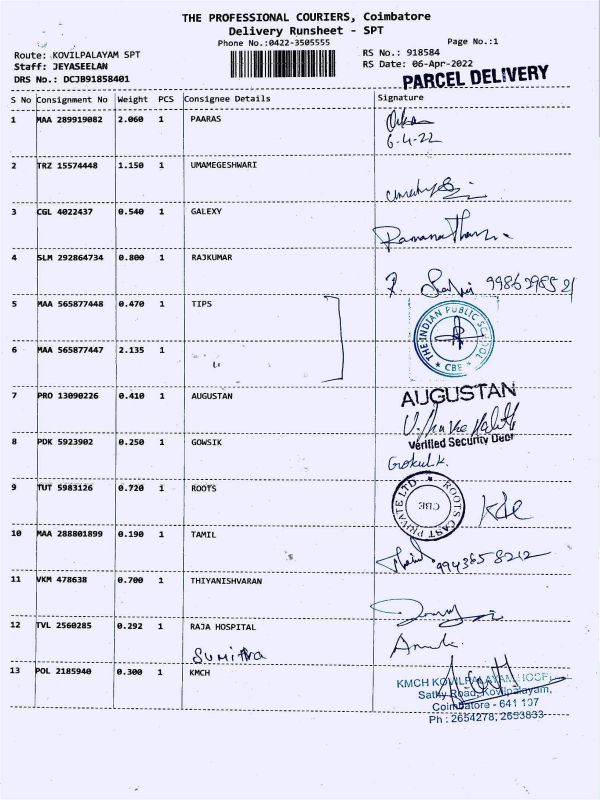 THE PROFESSIONAL COURIERS, Coimbatore
Delivery Runsheet - SPT
Phone No.:0422-3505555
Page No.:1
Route: KOVILPALAYAM SPT
RS No.: 918584
Staff: JEYASEELAN
RS Date: 06-Apr-2022
DRS No.: DCJB91858401
PARCEL DELIVERY
S No Consignment No Weight PCS Consignee Details Signature
1 MAA 289919082 2.060 1 PAARAS
6-4-22
2 TRZ 15574448 1.150 1 UMAMEGESHWARI
3 CGL 4022437 0.540 1 GALEXY
Ramanathan
4 SLM 292864734 0.800 1 RAJKUMAR
5 MAA 565877448 0.470 1 TIPS
THE INDIAN PUBLIC SCHOOL
* CBE *
6 MAA 565877447 2.135 1
7 PRO 13090226 0.410 1 AUGUSTAN
AUGUSTAN
Verified Security Dept
8 PDK 5923902 0.250 1 GOWSIK
Gokul.k.
9 TUT 5983126 0.720 1 ROOTS
ROOTS CAST PRIVATE LTD
CBE
10 MAA 288801899 0.190 1 TAMIL
9943658212
11 VKM 478638 0.700 1 THIYANISHVARAN
12 TVL 2560285 0.292 1 RAJA HOSPITAL
Sumithra
13 POL 2185940 0.300 1 KMCH
KMCH KOVILPALAYAM HOSPI
Sathy Road, Kovilpalayam,
Coimbatore - 641 107
Ph : 2654278, 2653833